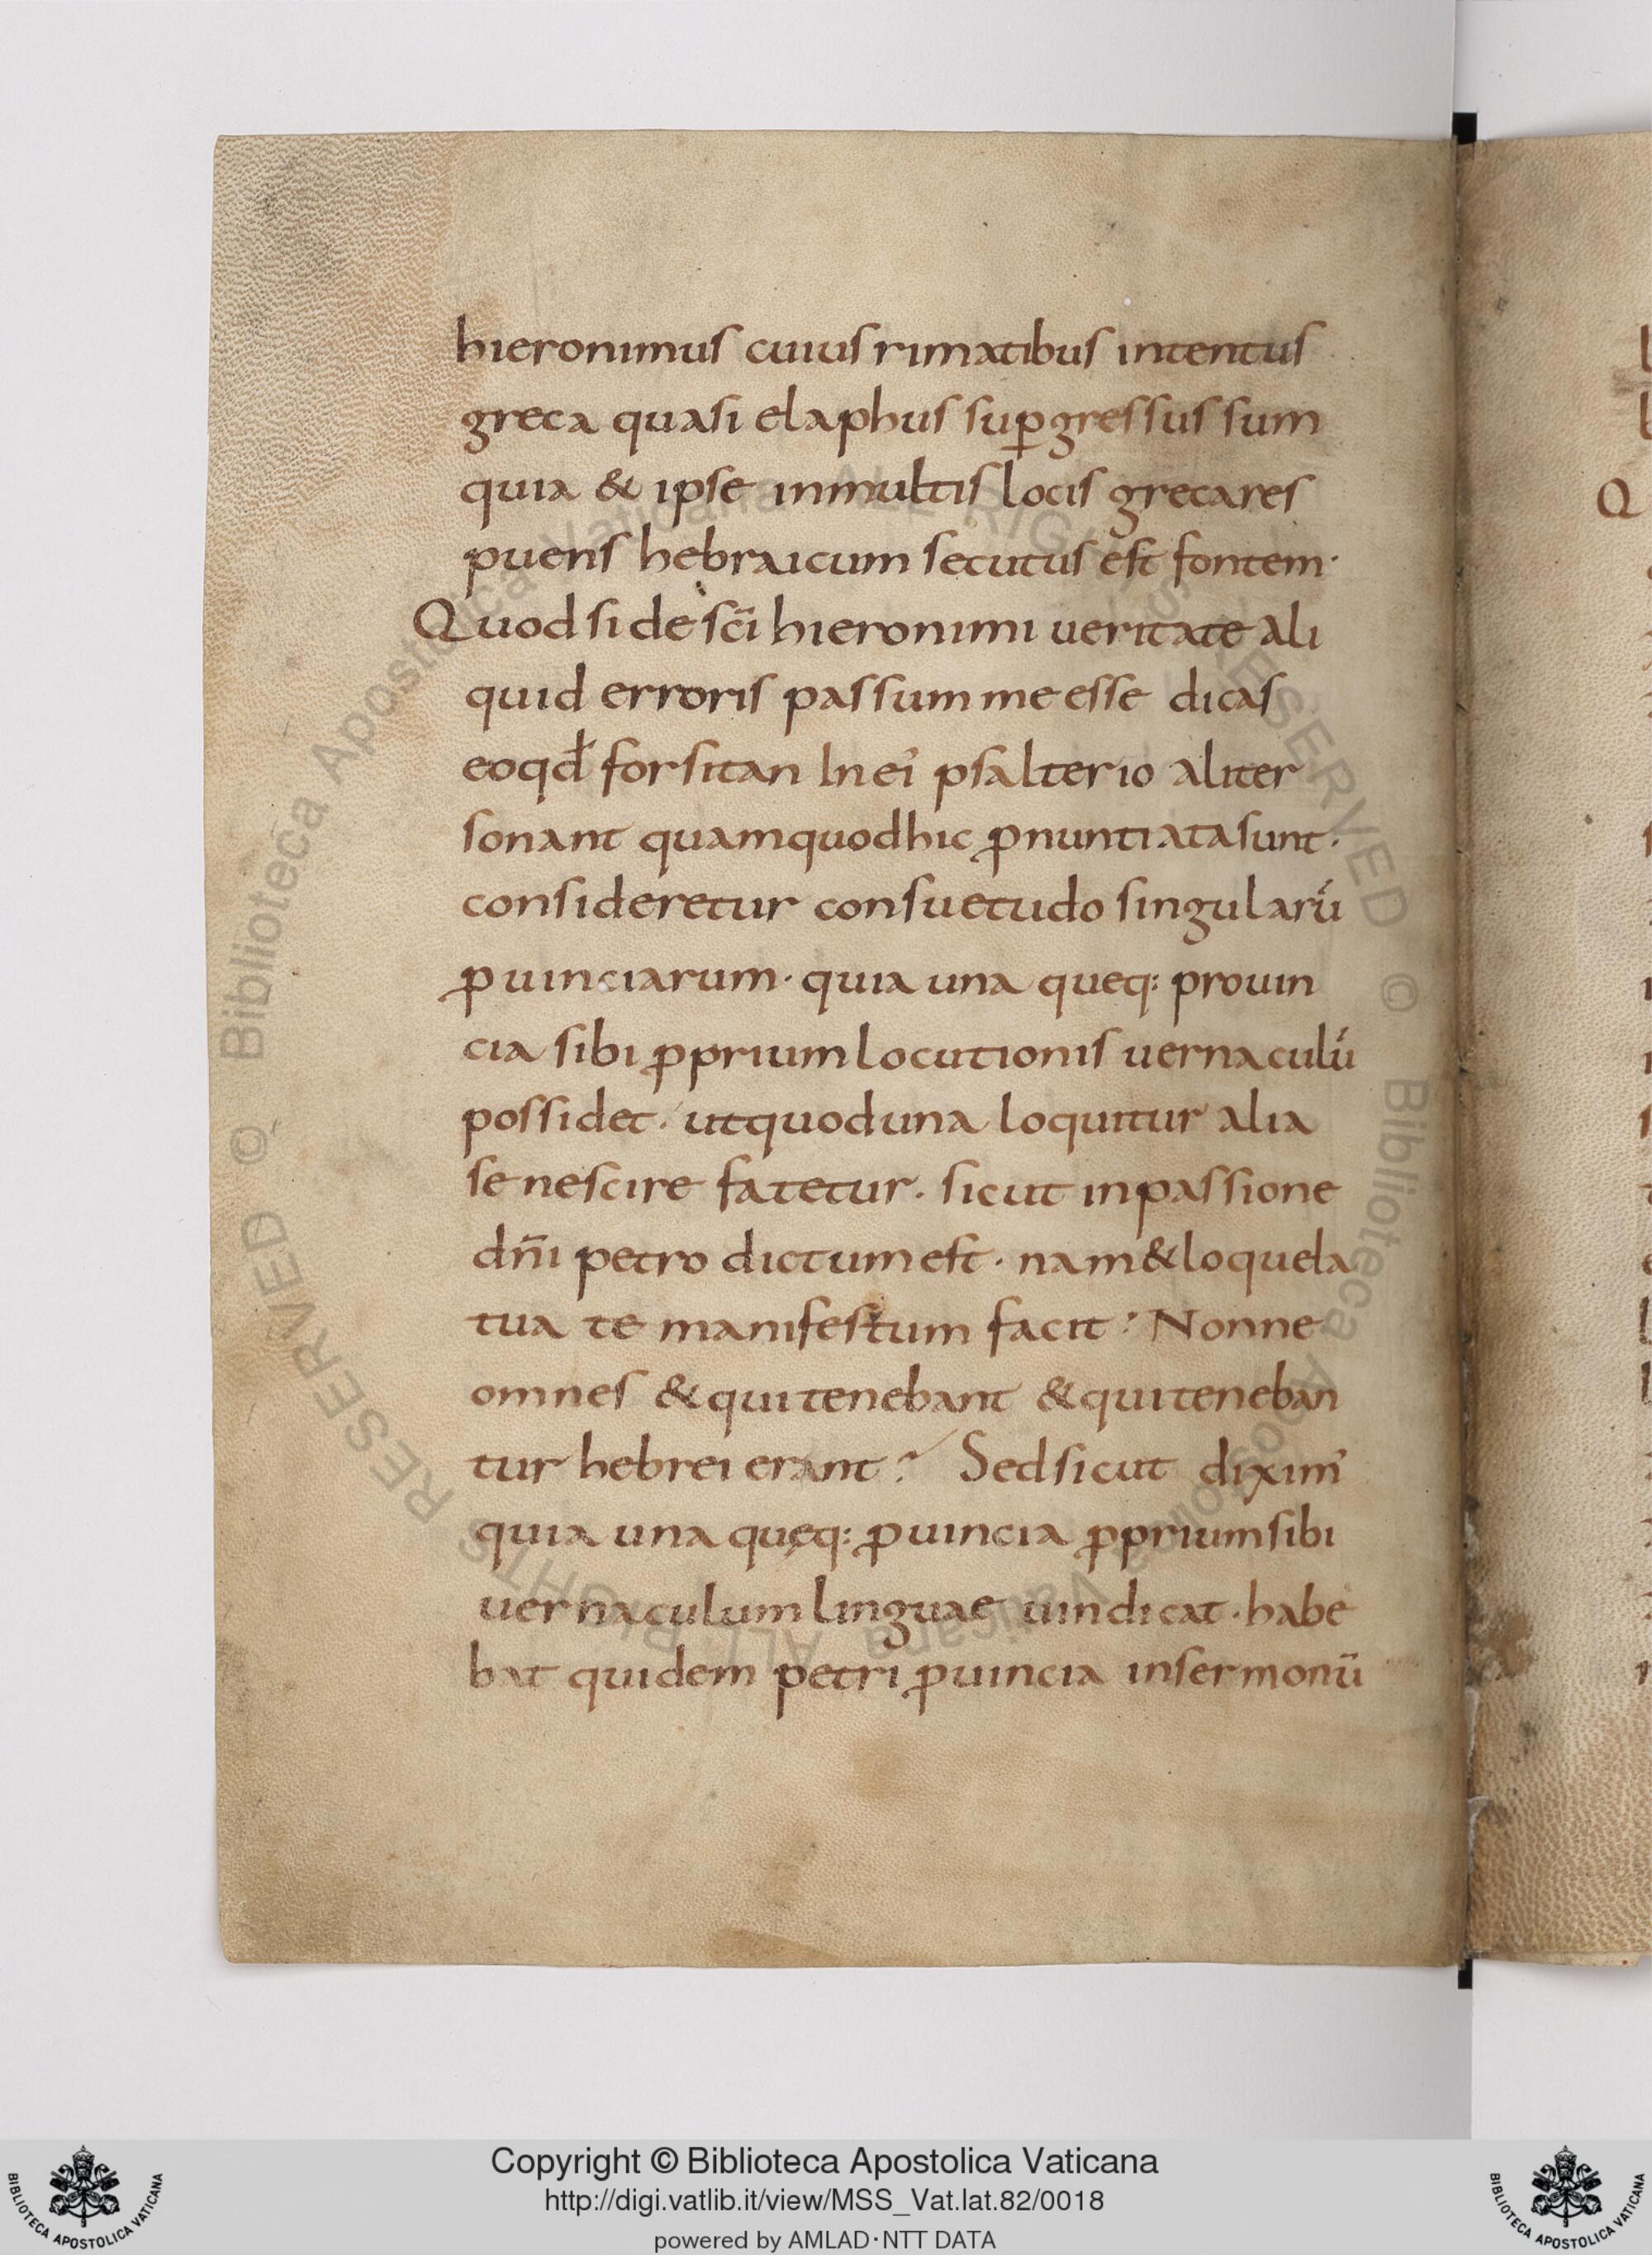 hieronimus cuius rimatibus intentus
greca quasi elaphus suꝑgressus sum
quia & ipse inmultis locis grecares
puens hebraicum secutus est fontem·
Quod si de sc̄i hieronimi ueritate ali
quid erroris passum me esse dicas
eoqđ forsitan In ei' psalterio aliter
sonant quamquodhic ꝓnuntiata sunt·
consideretur consuetudo singularū
ꝓuinciarum· quia una queq: prouin
cia sibi ꝓprium locutionis uernaculū
possidet· utquod una loquitur alia
se nescire fatetur· sicut inpassione
dn̄i petro dictum est· nam & loquela
tua te manifestum facit? Nonne
omnes & qui tenebant & qui teneban
tur hebrei erant? Sed sicut dixim'
quia una quęq: ꝓuincia ꝓprium sibi
uernaculum linguae uindicat· habe
bat quidem petri ꝓuincia insermonū
Copyright © Biblioteca Apostolica Vaticana
http://digi.vatlib.it/view/MSS_Vat.lat.82/0018
powered by AMLAD·NTT DATA
BIBLIOTECA APOSTOLICA VATICANA
BIBLIOTECA APOSTOLICA VATICANA
© Biblioteca Apostolica Vaticana ALL RIGHTS RESERVED
© Biblioteca Apostolica Vaticana ALL RIGHTS RESERVED